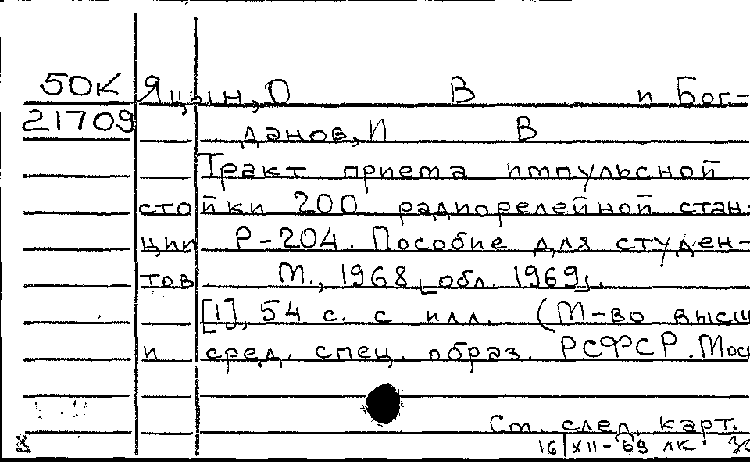 50К Яцын, О В и Бог-
21709 данов, И В
Тракт приема импульсной
стойки 200 радиорелейной стан-
ции Р-204. Пособие для студен-
тов М., 1968 [обл. 1969].
[1], 54 с. с илл. (М-во высш
и сред. спец. образ. РСФСР. Мос
См. след. карт.
16 XII-69 ЛК